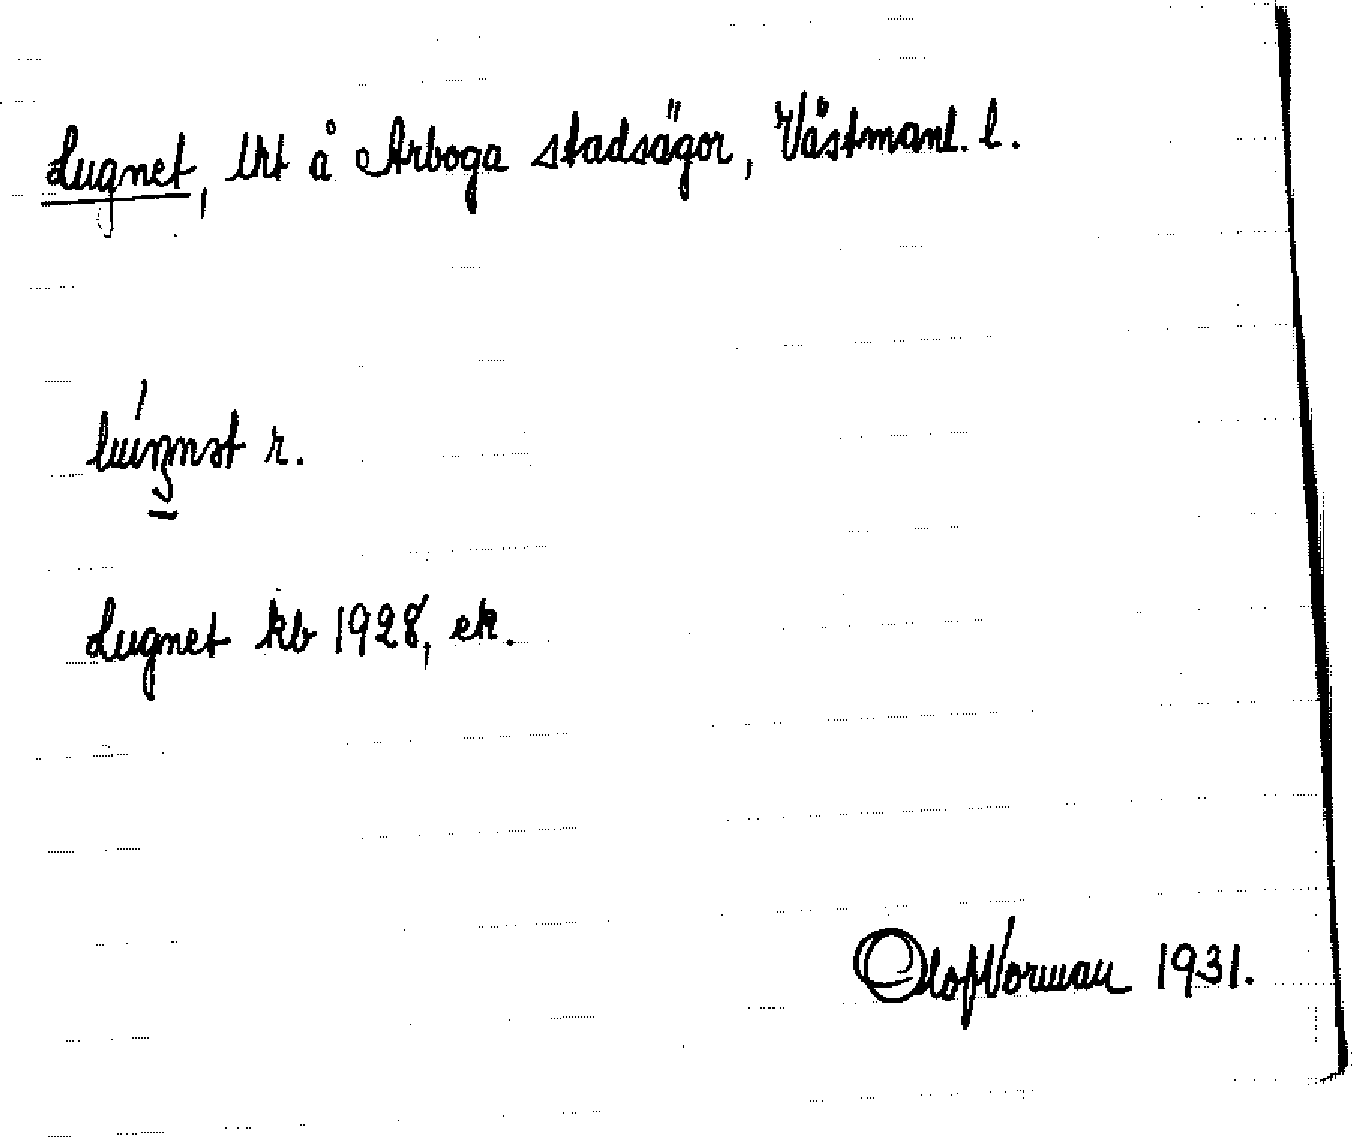 Lugnet, lht å Arboga stadsägor, Västmanl. l.
r.
Lugnet kb 1928, ek.
Olof Norman 1931.